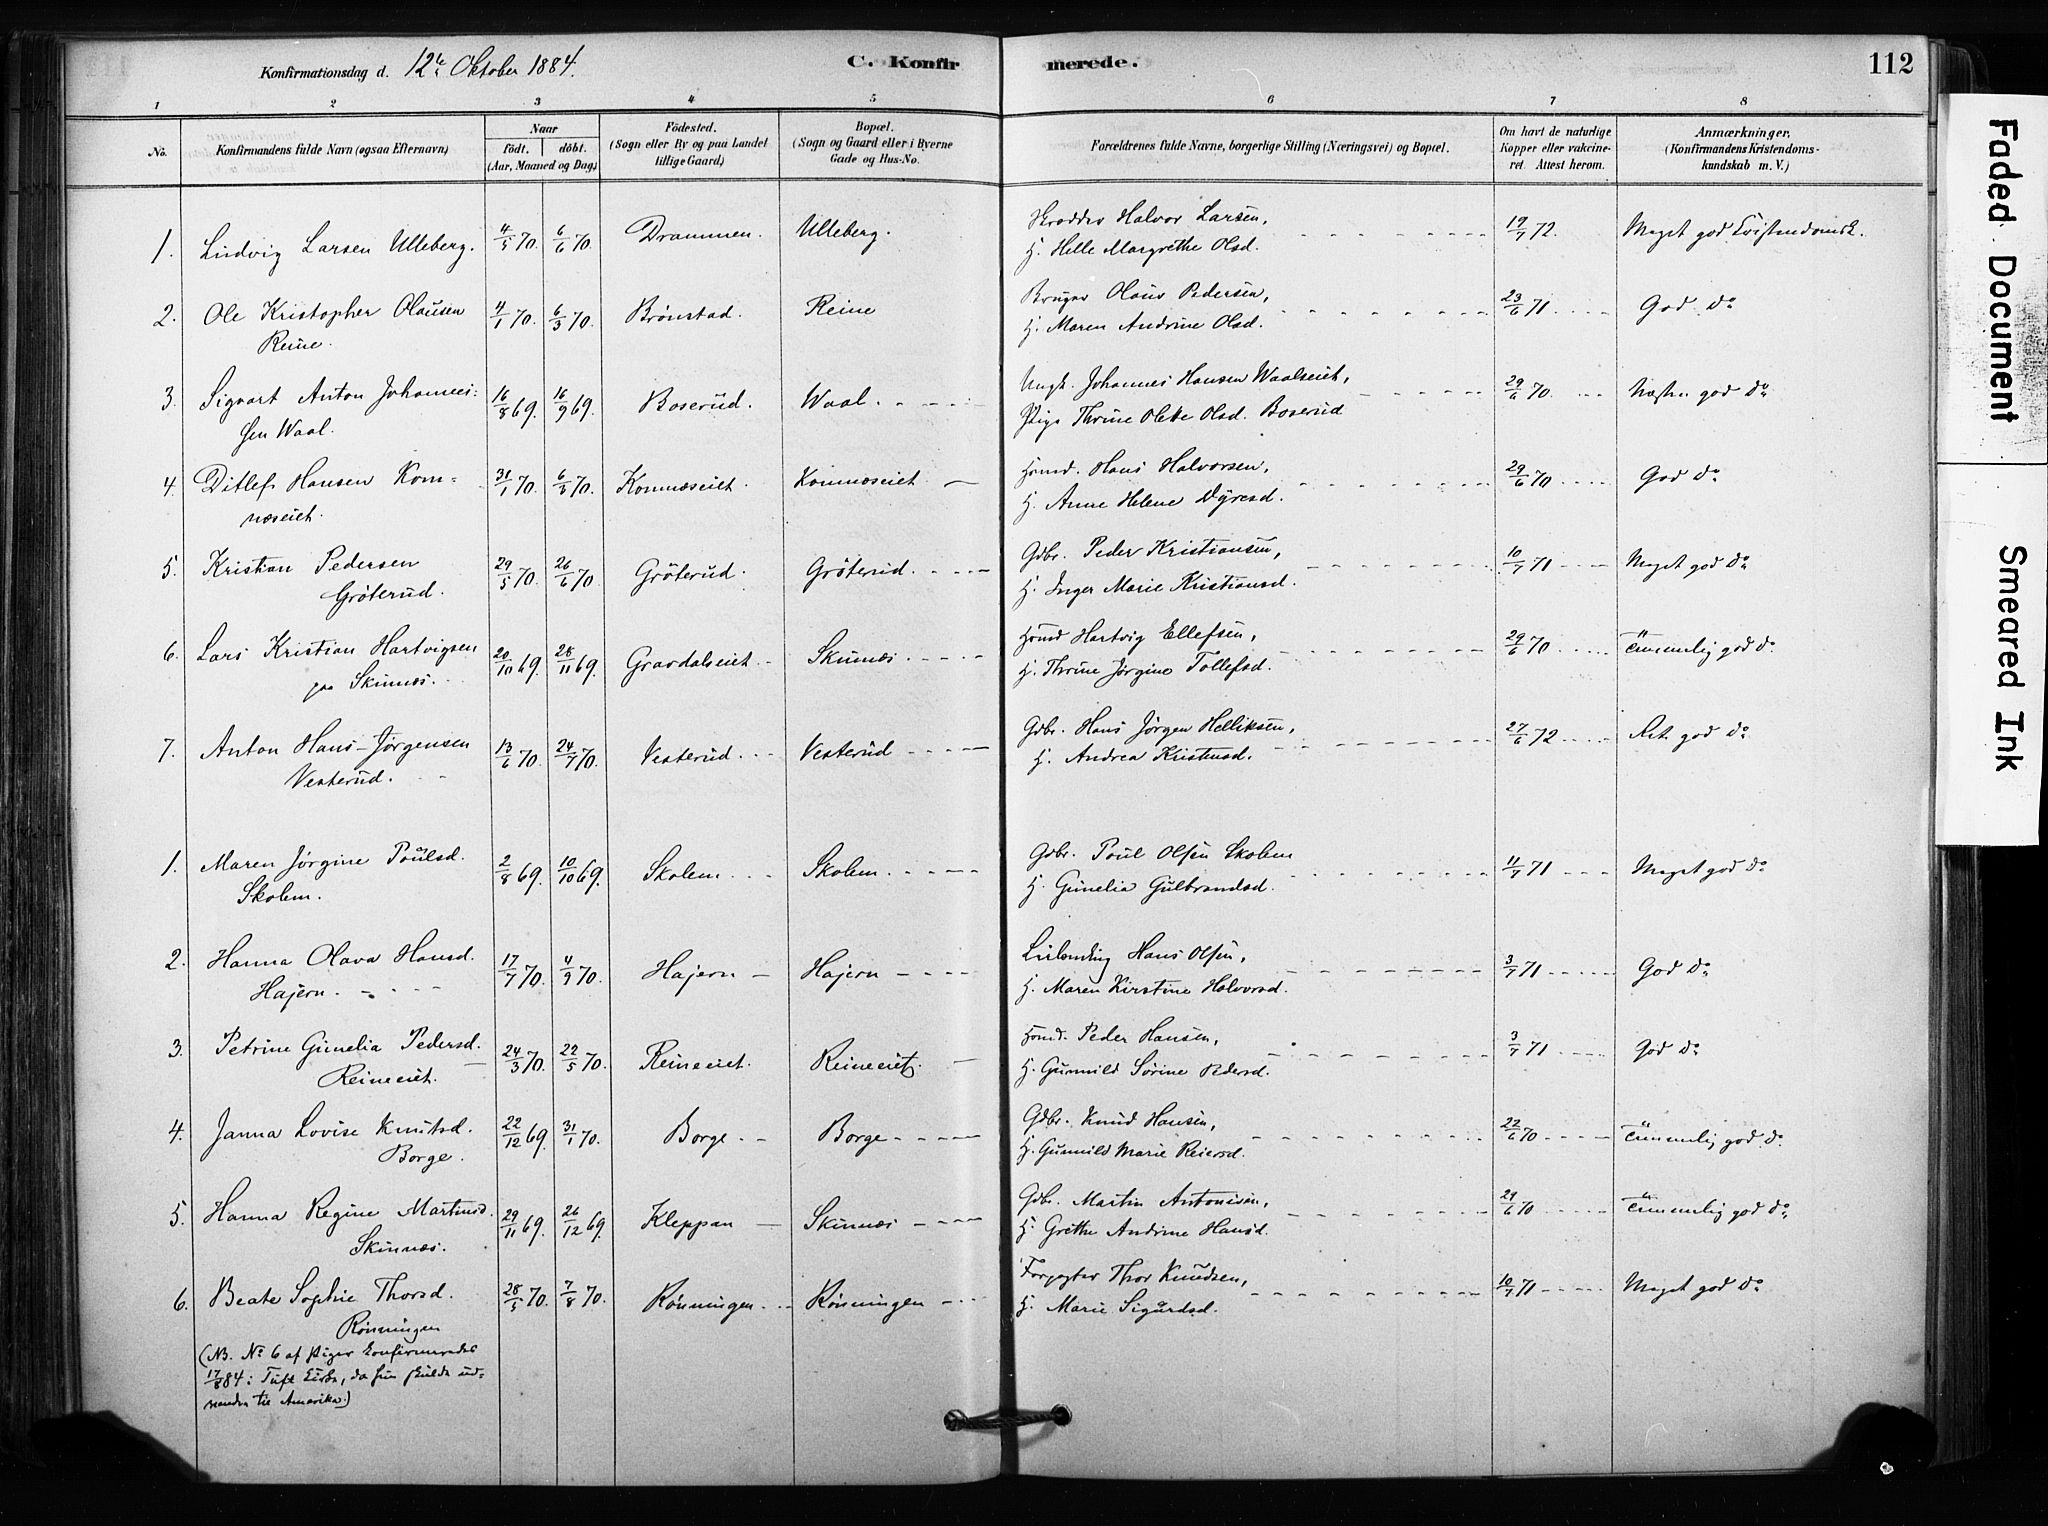 Konfirmationsdag d. 12te Oktober 1884.
C. Konfirmerede.
112
1 2 3 4 5 6 7 8
No.
Konfirmandens fulde Navn (ogsaa Efternavn)
Naar
födt. döbt.
(Aar, Maaned og Dag)
Födested.
(Sogn eller By og paa Landet
tillige Gaard)
Bopæl.
(Sogn og Gaard eller i Byerne
Gade og Hus-No.
Forældrenes fulde Navne, borgerlige Stilling (Næringsvei) og Bopæl.
Om havt de naturlige
Kopper eller vakcine-
ret. Attest herom.
Anmærkninger.
(Konfirmandens Kristendoms-
kundskab m. V.)
1. Ludvig Larsen Ulleberg. 4/5 70. 6/6 70. Drammen. Ulleberg. Skrædder Halvor Larsen, 19/7 72. Meget god Kristendomsk.
H. Helle Margrethe Olsd.
2. Ole Kristopher Olausen 4/1 70. 6/3 70. Brönstad. Reine Bruger Olaus Pedersen, 23/6 71 God do
Reine. H. Maren Andrine Olsd.
3. Sigvart Anton Johannes- 16/8 69. 16/9 69. Boserud. Waal. Ungk. Johannes Hansen Waalseiet, 29/6 70. Næsten god do
sen Waal. Pige Thrine Olette Olsd. Boserud
4. Ditlef Hansen Kom- 31/1 70. 6/3 70. Komnæseiet. Komnæseiet Hsmd. Hans Halvorsen, 29/6 70 God do
næseiet. H. Anne Helene Dyresd.
5. Kristian Pedersen 29/5 70. 26/6 70. Gröterud. Gröterud. Gdbr. Peder Kristiansen, 10/7 71 Meget god do
Gröterud. H. Inger Marie Kristiansd.
6. Lars Kristian Hartvigsen 20/10 69. 28/11 69. Gravdalseiet Skinnæs. Hsmd Hartvig Ellefsen, 29/6 70 Temmelig god do
paa Skinnæs. H. Thrine Jörgine Tollefsd.
7. Anton Hans-Jörgensen 13/6 70. 24/7 70. Vesterud. Vesterud Gdbr. Hans Jörgen Helliksen, 27/6 72 Ret god do
Vesterud. H. Andrea Kristensd.
1. Maren Jörgine Poulsd. 2/8 69. 10/10 69. Skolem Skolem. Gdbr. Poul Olsen Skolem 4/7 71 Meget god do
Skolem. H. Gunelia Gulbrandsd.
2. Hanna Olava Hansd. 17/7 70. 4/9 70. Hajern Hajern Hans Olsen, 3/7 71 God do
Hajern. H. Maren Kirstine Halvorsd.
3. Petrine Gunelia Pedersd. 24/3 70. 22/5 70. Reineeiet. Reineeiet. Hsmd. Peder Hansen, 3/7 71 God do
Reineeiet. H. Gunnild Sörine Pedersd.
4. Janna Lovise Knutsd. 22/12 69. 31/1 70. Borge Borge Gdbr. Knud Hansen, 22/6 70 Temmelig god do
Borge. H. Gunnild Marie Reiersd.
5. Hanna Regine Martinsd. 29/11 69. 26/12 69. Kleppan Skinnæs Gdbr. Martin Antonisen, 29/6 70 Temmelig god do
Skinnæs. H. Grethe Andrine Hansd.
6. Beate Sophie Thorsd. 28/5 70. 7/8 70. Rönningen Rönningen Forpagter Thor Knudsen, 10/7 71 Meget god do
Rönningen H. Marie Sigurdsd.
(NB. No 6 af Piger konfirmeredes
17/8 84 i Tuft Kirke, da hun skulde ud-
vandre til Amerika.)
Faded Document
Smeared Ink